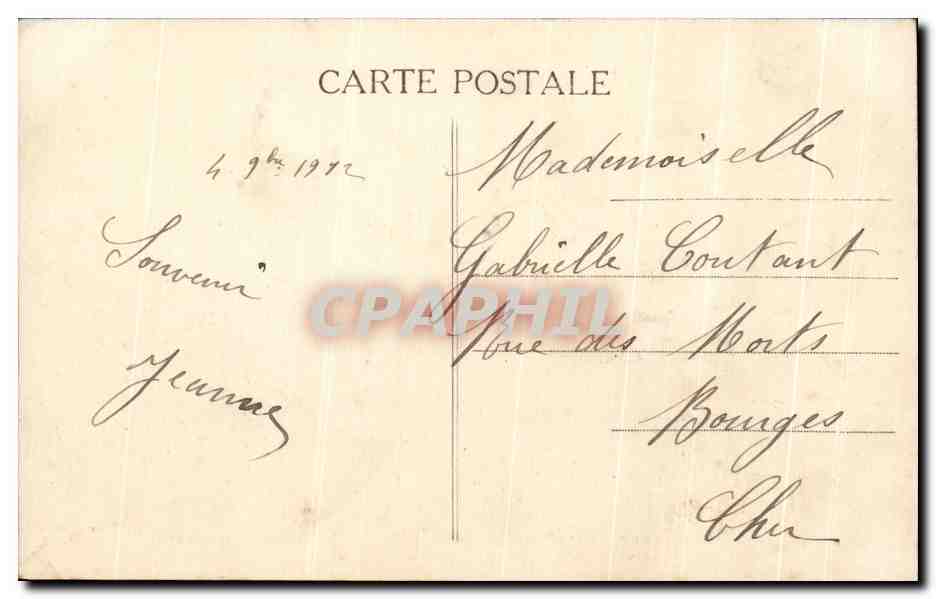 CARTE POSTALE
4 9bre 1912
Souvenir
Jeanne
Mademoiselle
Gabrielle Coutant
Rue des Morts
Bourges
Cher
CPAPHIL